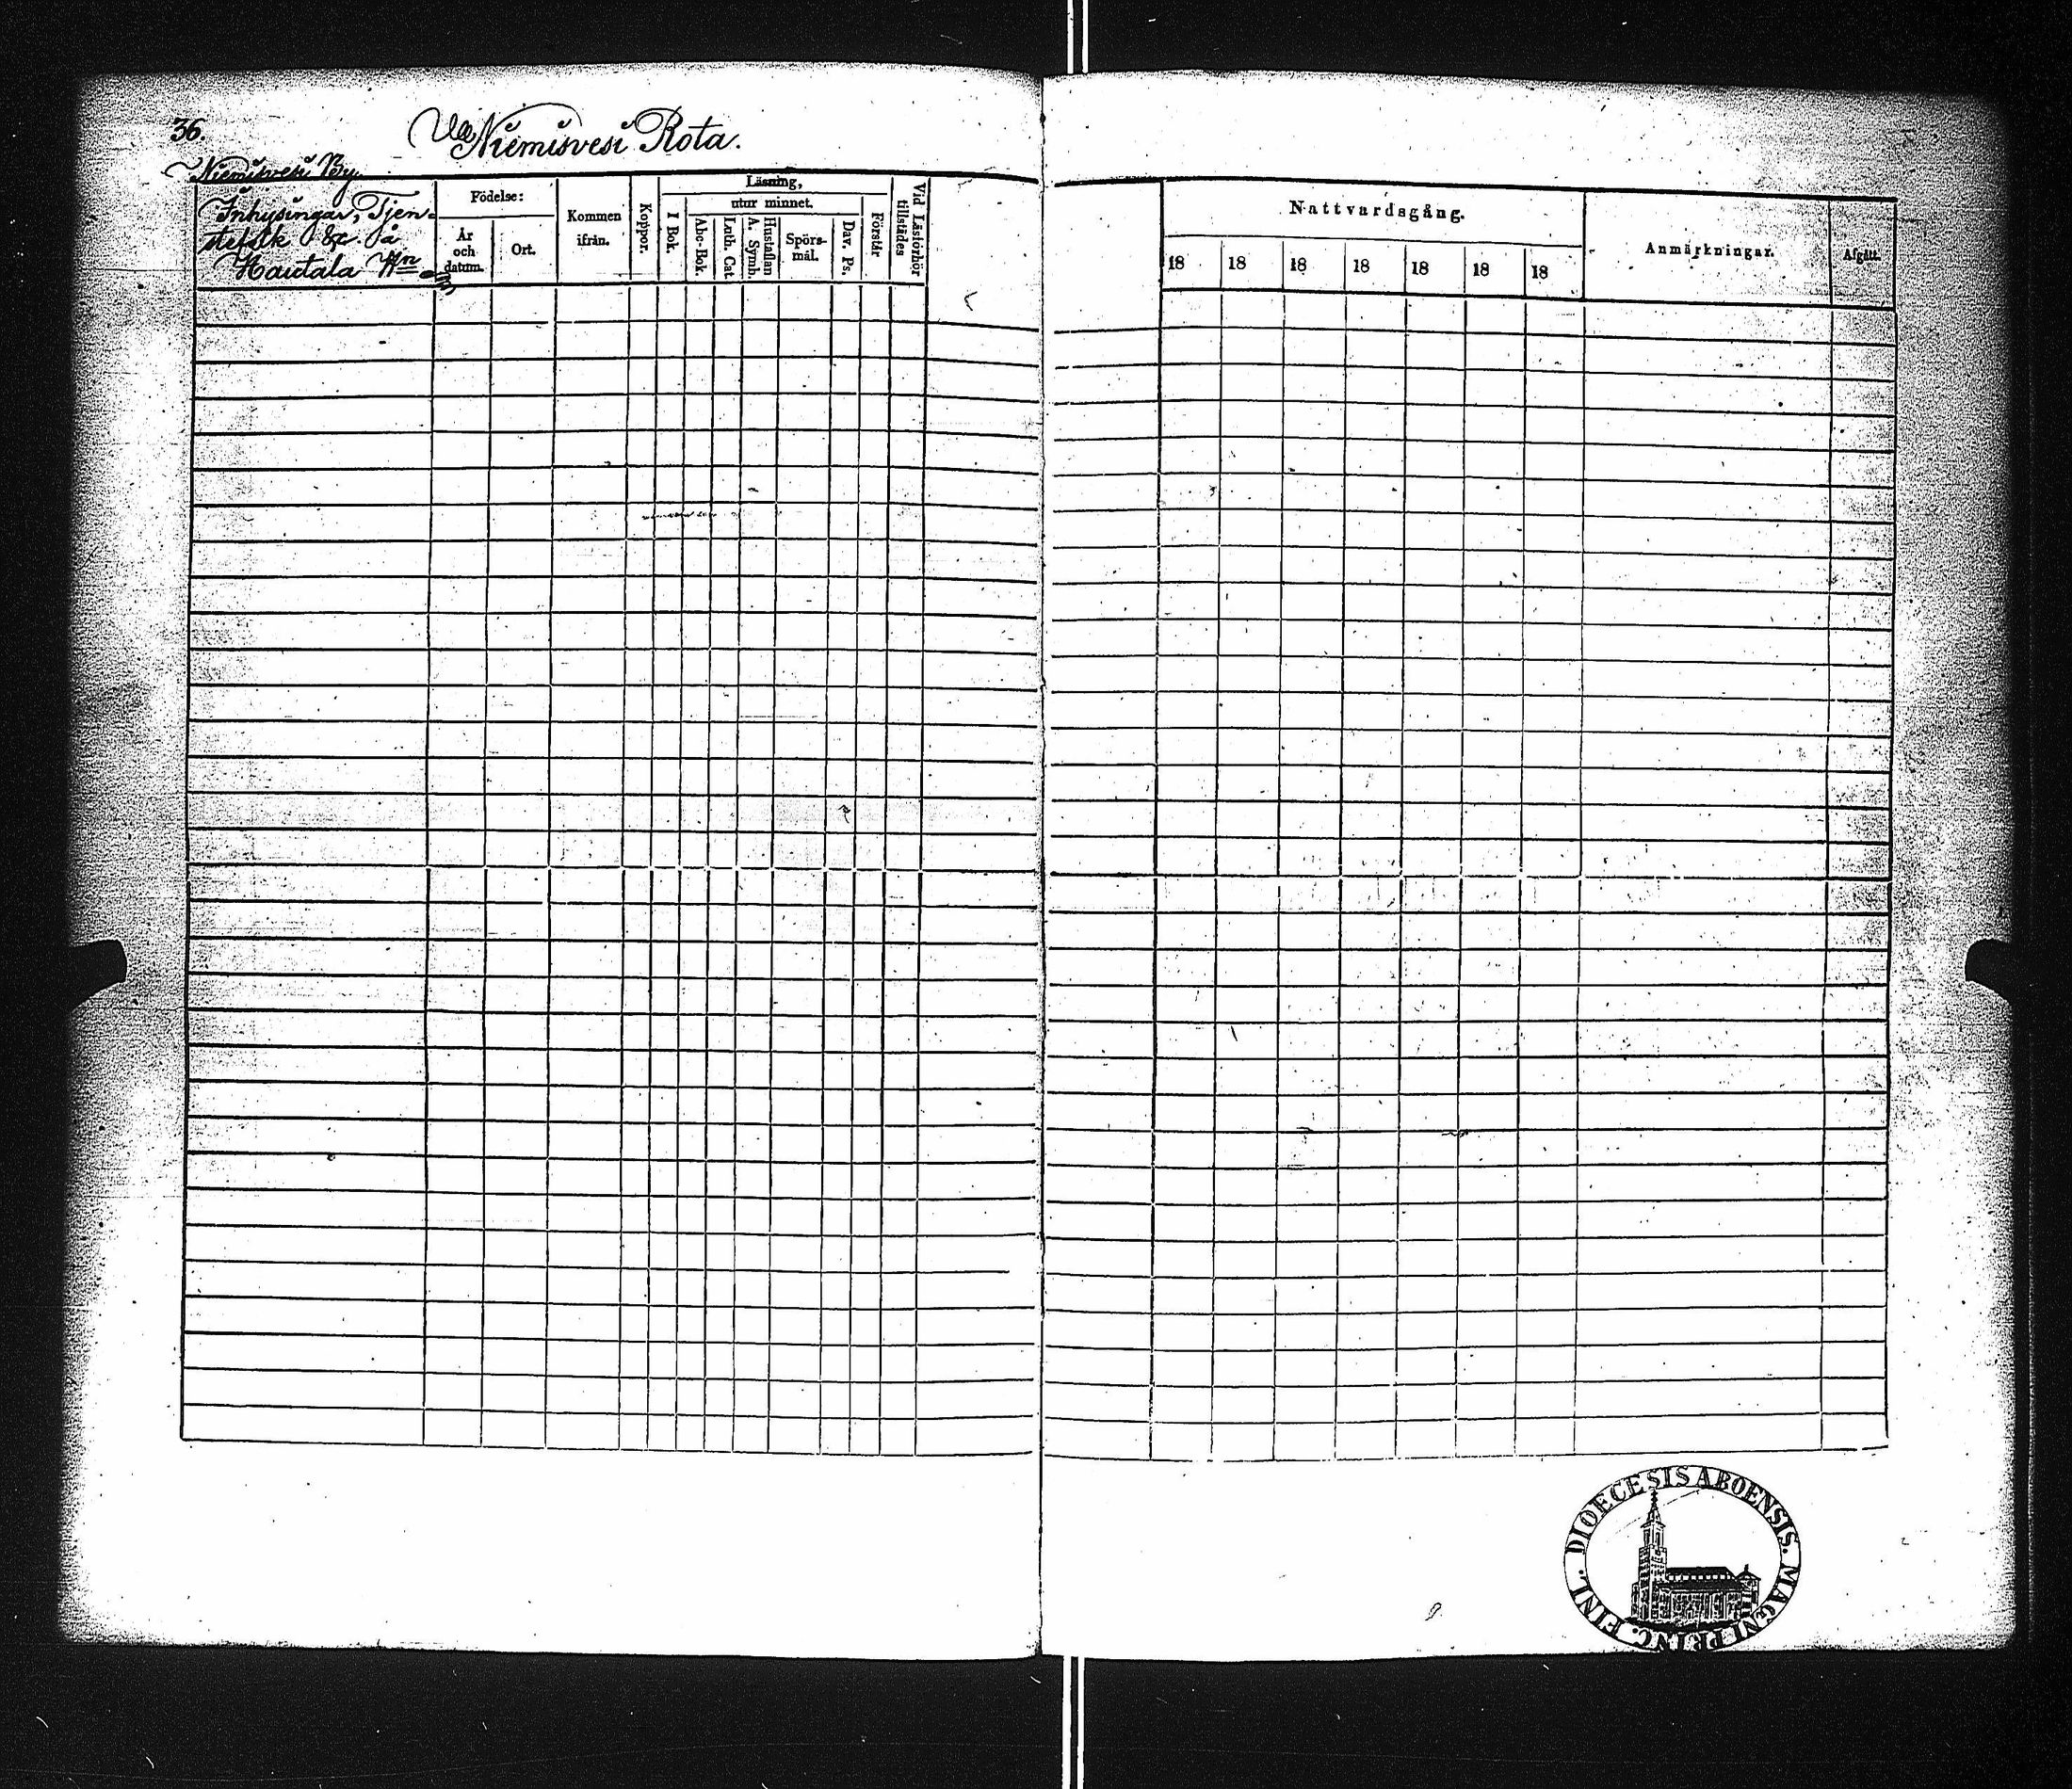 36.
VII Niemisvesi Rota.
Niemisvesi By
Inhysingar, Tjen-
stefolk &c. på
Hautala Hn
Födelse:
År
och
datum.
Ort.
Kommen
ifrån.
Koppor.
Läsning,
I Bok.
utur minnet.
Abc-Bok.
Luth. Cat.
Hustaflan
A. Symb.
Spörs-
mål.
Dav. Ps.
Förstår
Vid Läsförhör
tillstädes
Nattvardsgång.
18 18 18 18 18 18 18
Anmärkningar.
Afgått.
DIOECESIS ABOENSIS. MAGNI PRINC. FINL.